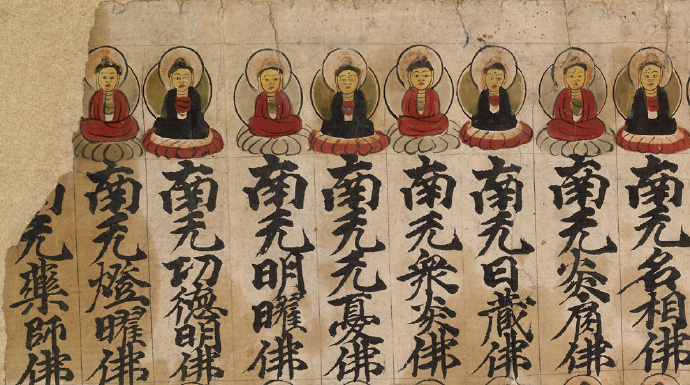 南无名相佛
南无炎肩佛
南无日藏佛
南无衆炎佛
南无无憂佛
南无明曜佛
南无功德明佛
南无燈曜佛
南无藥師佛